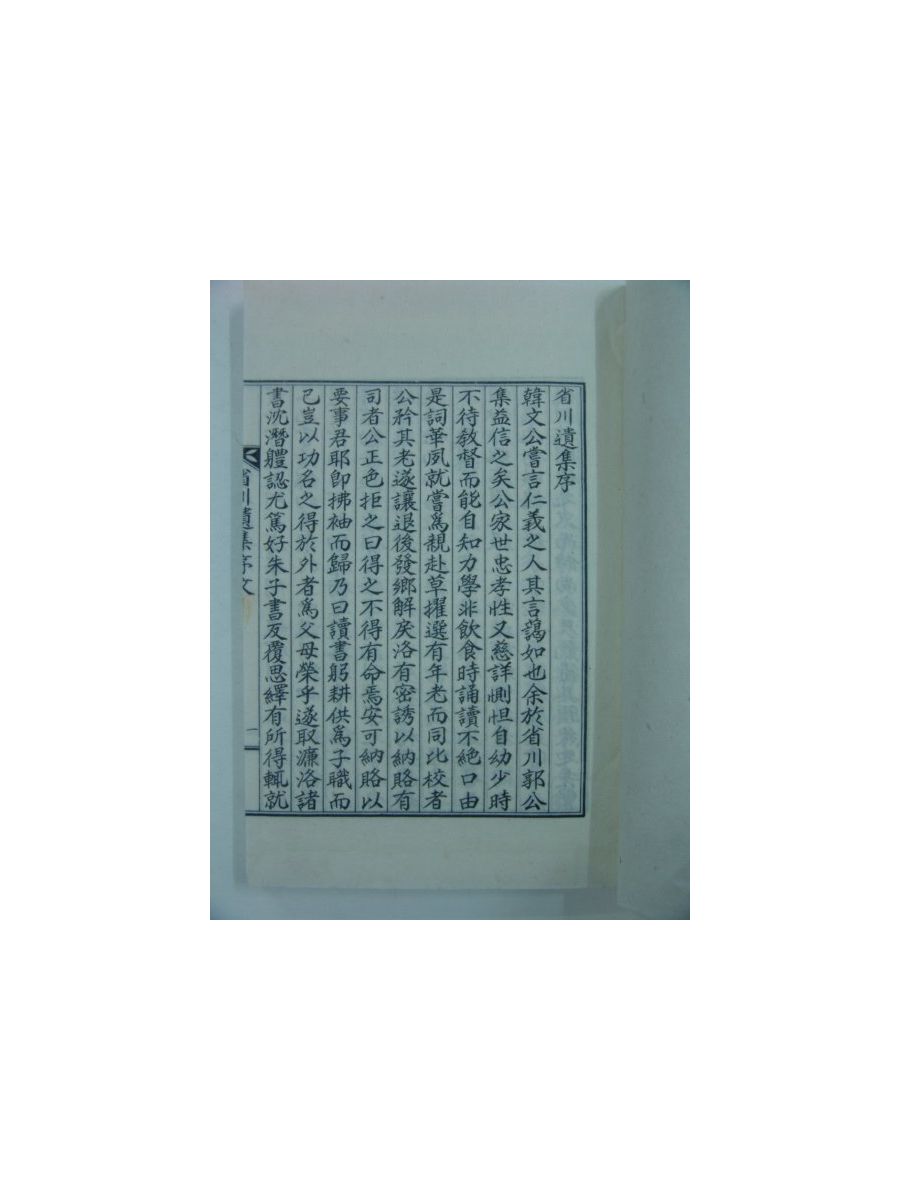 省川遺集序
韓文公嘗言仁義之人其言藹如也余於省川郭公
集益信之矣公家世忠孝性又慈詳惻怛自幼少時
不待敎督而能自知力學非飮食時誦讀不絕口由
是詞華夙就嘗爲親赴草擢選有年老而同比校者
公矜其老遂讓退後發鄕解戾洛有密誘以納賂有
司者公正色拒之曰得之不得有命焉安可納賂以
要事君耶卽拂袖而歸乃曰讀書躬耕供爲子職而
己豈以功名之得於外者爲父母榮乎遂取濂洛諸
書沈潛軆認尤篤好朱子書反覆思繹有所得輒就
省川遺集序文
一